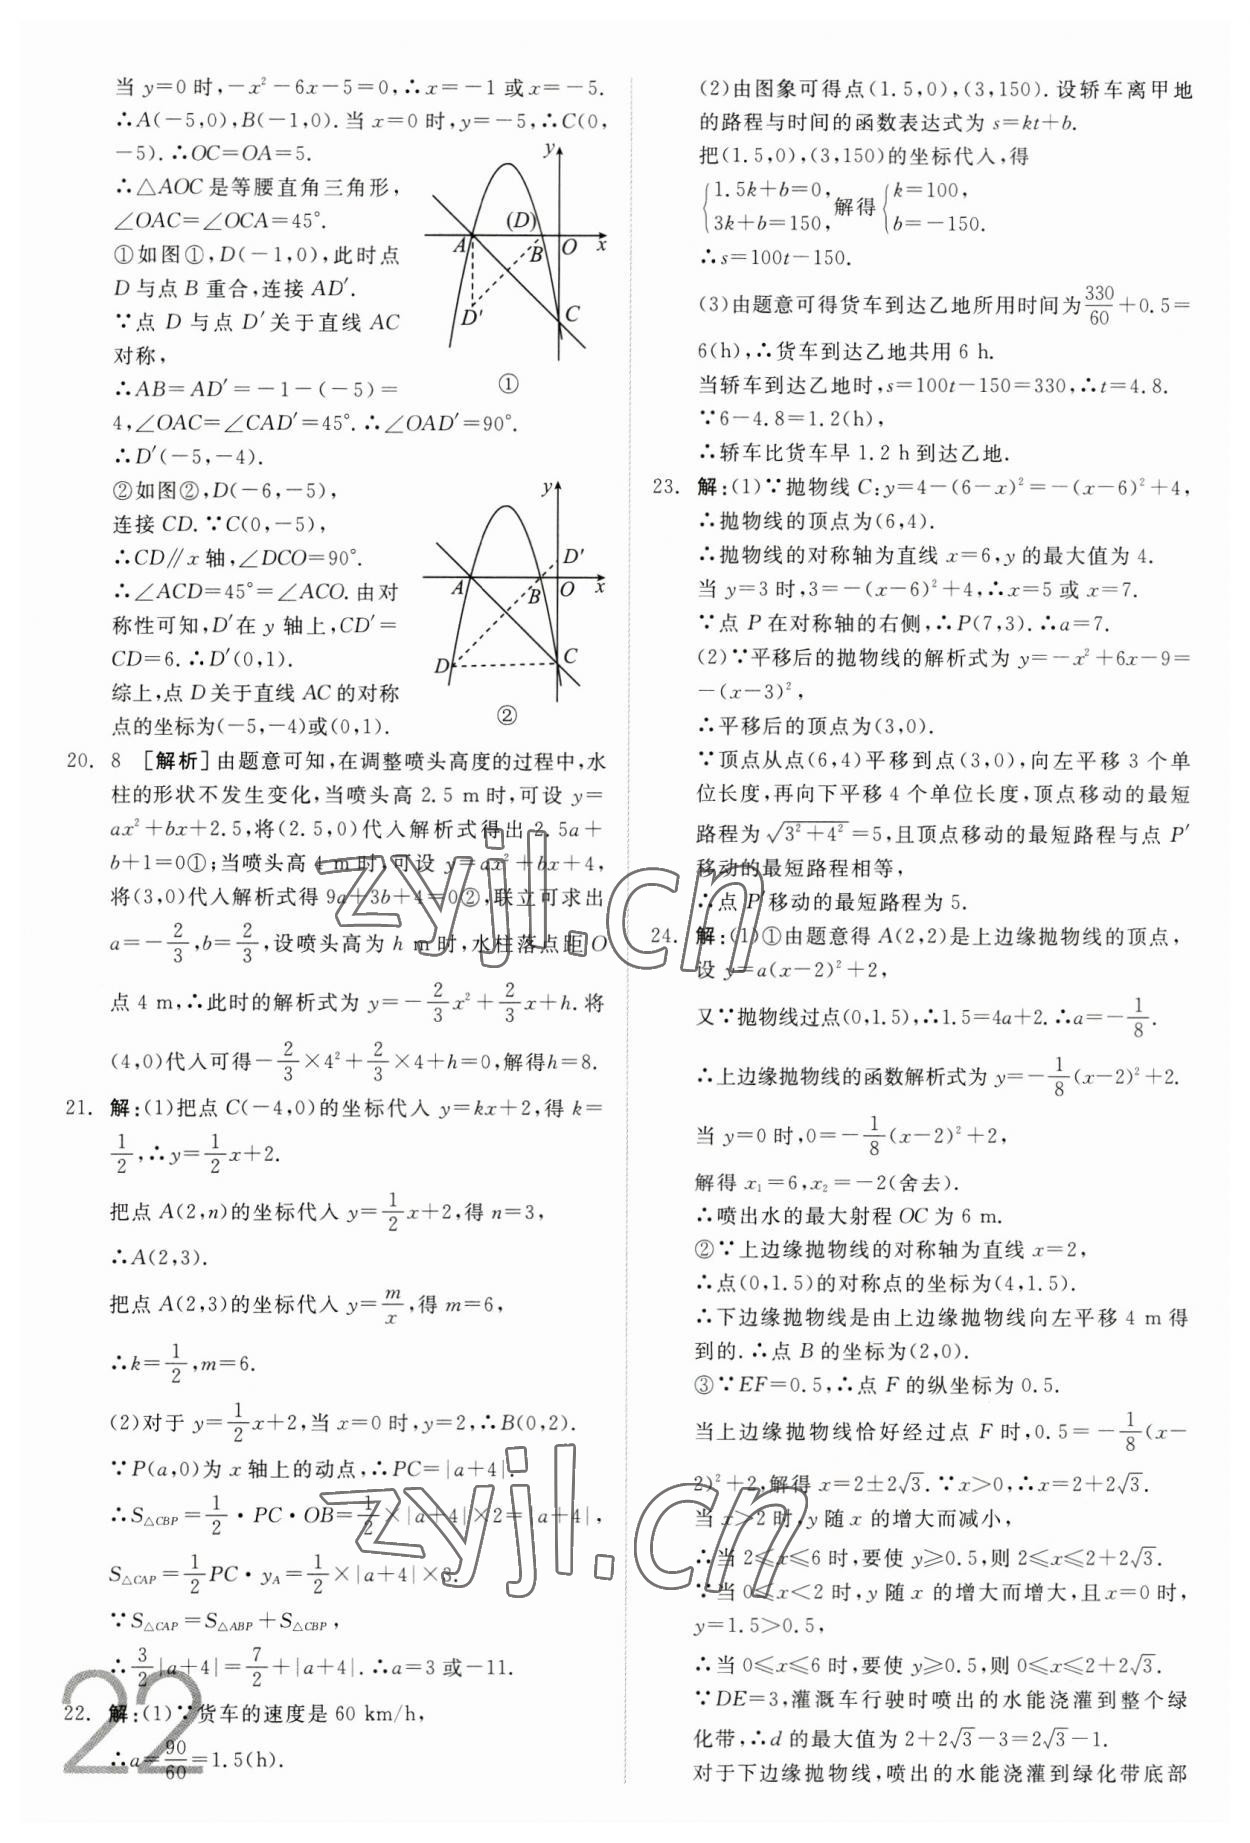 当 y=0 时,-x²-6x-5=0,∴x=-1 或 x=-5.
∴A(-5,0),B(-1,0).当 x=0 时,y=-5,∴C(0,
-5).∴OC=OA=5.
∴△AOC 是等腰直角三角形,
∠OAC=∠OCA=45°.
①如图①,D(-1,0),此时点
D 与点 B 重合,连接 AD′.
∵点 D 与点 D′关于直线 AC
对称,
∴AB=AD′=-1-(-5)=
4,∠OAC=∠CAD′=45°.∴∠OAD′=90°.
∴D′(-5,-4).
y
(D)
A B O x
D′ C
①
②如图②,D(-6,-5),
连接 CD.∵C(0,-5),
∴CD∥x 轴,∠DCO=90°.
∴∠ACD=45°=∠ACO.由对
称性可知,D′在 y 轴上,CD′=
CD=6.∴D′(0,1).
综上,点 D 关于直线 AC 的对称
点的坐标为(-5,-4)或(0,1).
y
D′
A B O x
D C
②
20. 8 [解析]由题意可知,在调整喷头高度的过程中,水
柱的形状不发生变化,当喷头高 2.5 m 时,可设 y=
ax²+bx+2.5,将(2.5,0)代入解析式得出 2.5a+
b+1=0①;当喷头高 4 m 时,可设 y=ax²+bx+4,
将(3,0)代入解析式得 9a+3b+4=0②,联立可求出
a=-2/3,b=2/3,设喷头高为 h m 时,水柱落点距 O
点 4 m,∴此时的解析式为 y=-2/3x²+2/3x+h.将
(4,0)代入可得-2/3×4²+2/3×4+h=0,解得h=8.
21. 解:(1)把点 C(-4,0)的坐标代入 y=kx+2,得 k=
1/2,∴y=1/2x+2.
把点 A(2,n)的坐标代入 y=1/2x+2,得 n=3,
∴A(2,3).
把点 A(2,3)的坐标代入 y=m/x,得 m=6,
∴k=1/2,m=6.
(2)对于 y=1/2x+2,当 x=0 时,y=2,∴B(0,2).
∵P(a,0)为 x 轴上的动点,∴PC=|a+4|.
∴S△CBP=1/2·PC·OB=1/2×|a+4|×2=|a+4|,
S△CAP=1/2PC·yA=1/2×|a+4|×3.
∵S△CAP=S△ABP+S△CBP,
∴3/2|a+4|=7/2+|a+4|.∴a=3 或-11.
22. 解:(1)∵货车的速度是 60 km/h,
∴a=90/60=1.5(h).
22
(2)由图象可得点(1.5,0),(3,150).设轿车离甲地
的路程与时间的函数表达式为 s=kt+b.
把(1.5,0),(3,150)的坐标代入,得
{1.5k+b=0, 3k+b=150, 解得 {k=100, b=-150.
∴s=100t-150.
(3)由题意可得货车到达乙地所用时间为330/60+0.5=
6(h),∴货车到达乙地共用 6 h.
当轿车到达乙地时,s=100t-150=330,∴t=4.8.
∵6-4.8=1.2(h),
∴轿车比货车早 1.2 h 到达乙地.
23. 解:(1)∵抛物线 C:y=4-(6-x)²=-(x-6)²+4,
∴抛物线的顶点为(6,4).
∴抛物线的对称轴为直线 x=6,y 的最大值为 4.
当 y=3 时,3=-(x-6)²+4,∴x=5 或 x=7.
∵点 P 在对称轴的右侧,∴P(7,3).∴a=7.
(2)∵平移后的抛物线的解析式为 y=-x²+6x-9=
-(x-3)²,
∴平移后的顶点为(3,0).
∵顶点从点(6,4)平移到点(3,0),向左平移 3 个单
位长度,再向下平移 4 个单位长度,顶点移动的最短
路程为 √(3²+4²)=5,且顶点移动的最短路程与点 P′
移动的最短路程相等,
∴点 P′移动的最短路程为 5.
24. 解:(1)①由题意得 A(2,2)是上边缘抛物线的顶点,
设 y=a(x-2)²+2,
又∵抛物线过点(0,1.5),∴1.5=4a+2.∴a=-1/8.
∴上边缘抛物线的函数解析式为 y=-1/8(x-2)²+2.
当 y=0 时,0=-1/8(x-2)²+2,
解得 x₁=6,x₂=-2(舍去).
∴喷出水的最大射程 OC 为 6 m.
②∵上边缘抛物线的对称轴为直线 x=2,
∴点(0,1.5)的对称点的坐标为(4,1.5).
∴下边缘抛物线是由上边缘抛物线向左平移 4 m 得
到的.∴点 B 的坐标为(2,0).
③∵EF=0.5,∴点 F 的纵坐标为 0.5.
当上边缘抛物线恰好经过点 F 时,0.5=-1/8(x-
2)²+2,解得 x=2±2√3.∵x>0,∴x=2+2√3.
当 x>2 时,y 随 x 的增大而减小,
∴当 2≤x≤6 时,要使 y≥0.5,则 2≤x≤2+2√3.
∵当 0≤x<2 时,y 随 x 的增大而增大,且 x=0 时,
y=1.5>0.5,
∴当 0≤x≤6 时,要使 y≥0.5,则 0≤x≤2+2√3.
∵DE=3,灌溉车行驶时喷出的水能浇灌到整个绿
化带,∴d 的最大值为 2+2√3-3=2√3-1.
对于下边缘抛物线,喷出的水能浇灌到绿化带底部
zyjl.cn
zyjl.cn